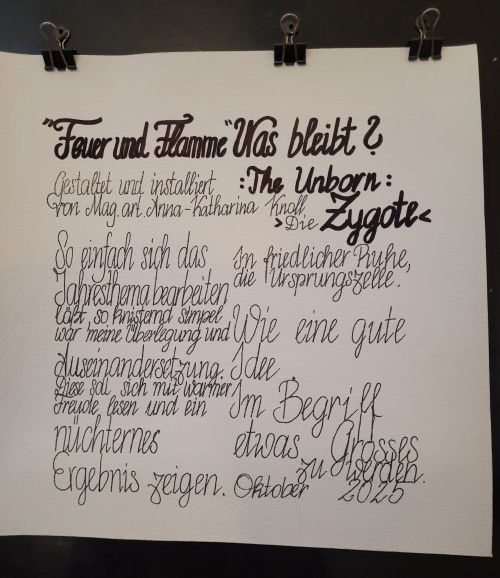 "Feuer und Flamme" Was bleibt?
Gestaltet und installiert
von Mag. art Anna-Katharina Knoll
:The Unborn:
>Die Zygote<
So einfach sich das
Jahresthema bearbeiten
läßt, so knisternd simpel
war meine Überlegung und
Auseinandersetzung.
Diese soll sich mit warmer
Freude lesen und ein
nüchternes
Ergebnis zeigen.
In friedlicher Ruhe,
die Ursprungszelle.
Wie eine gute
Idee.
Im Begriff
etwas Grosses
zu werden.
Oktober 2025